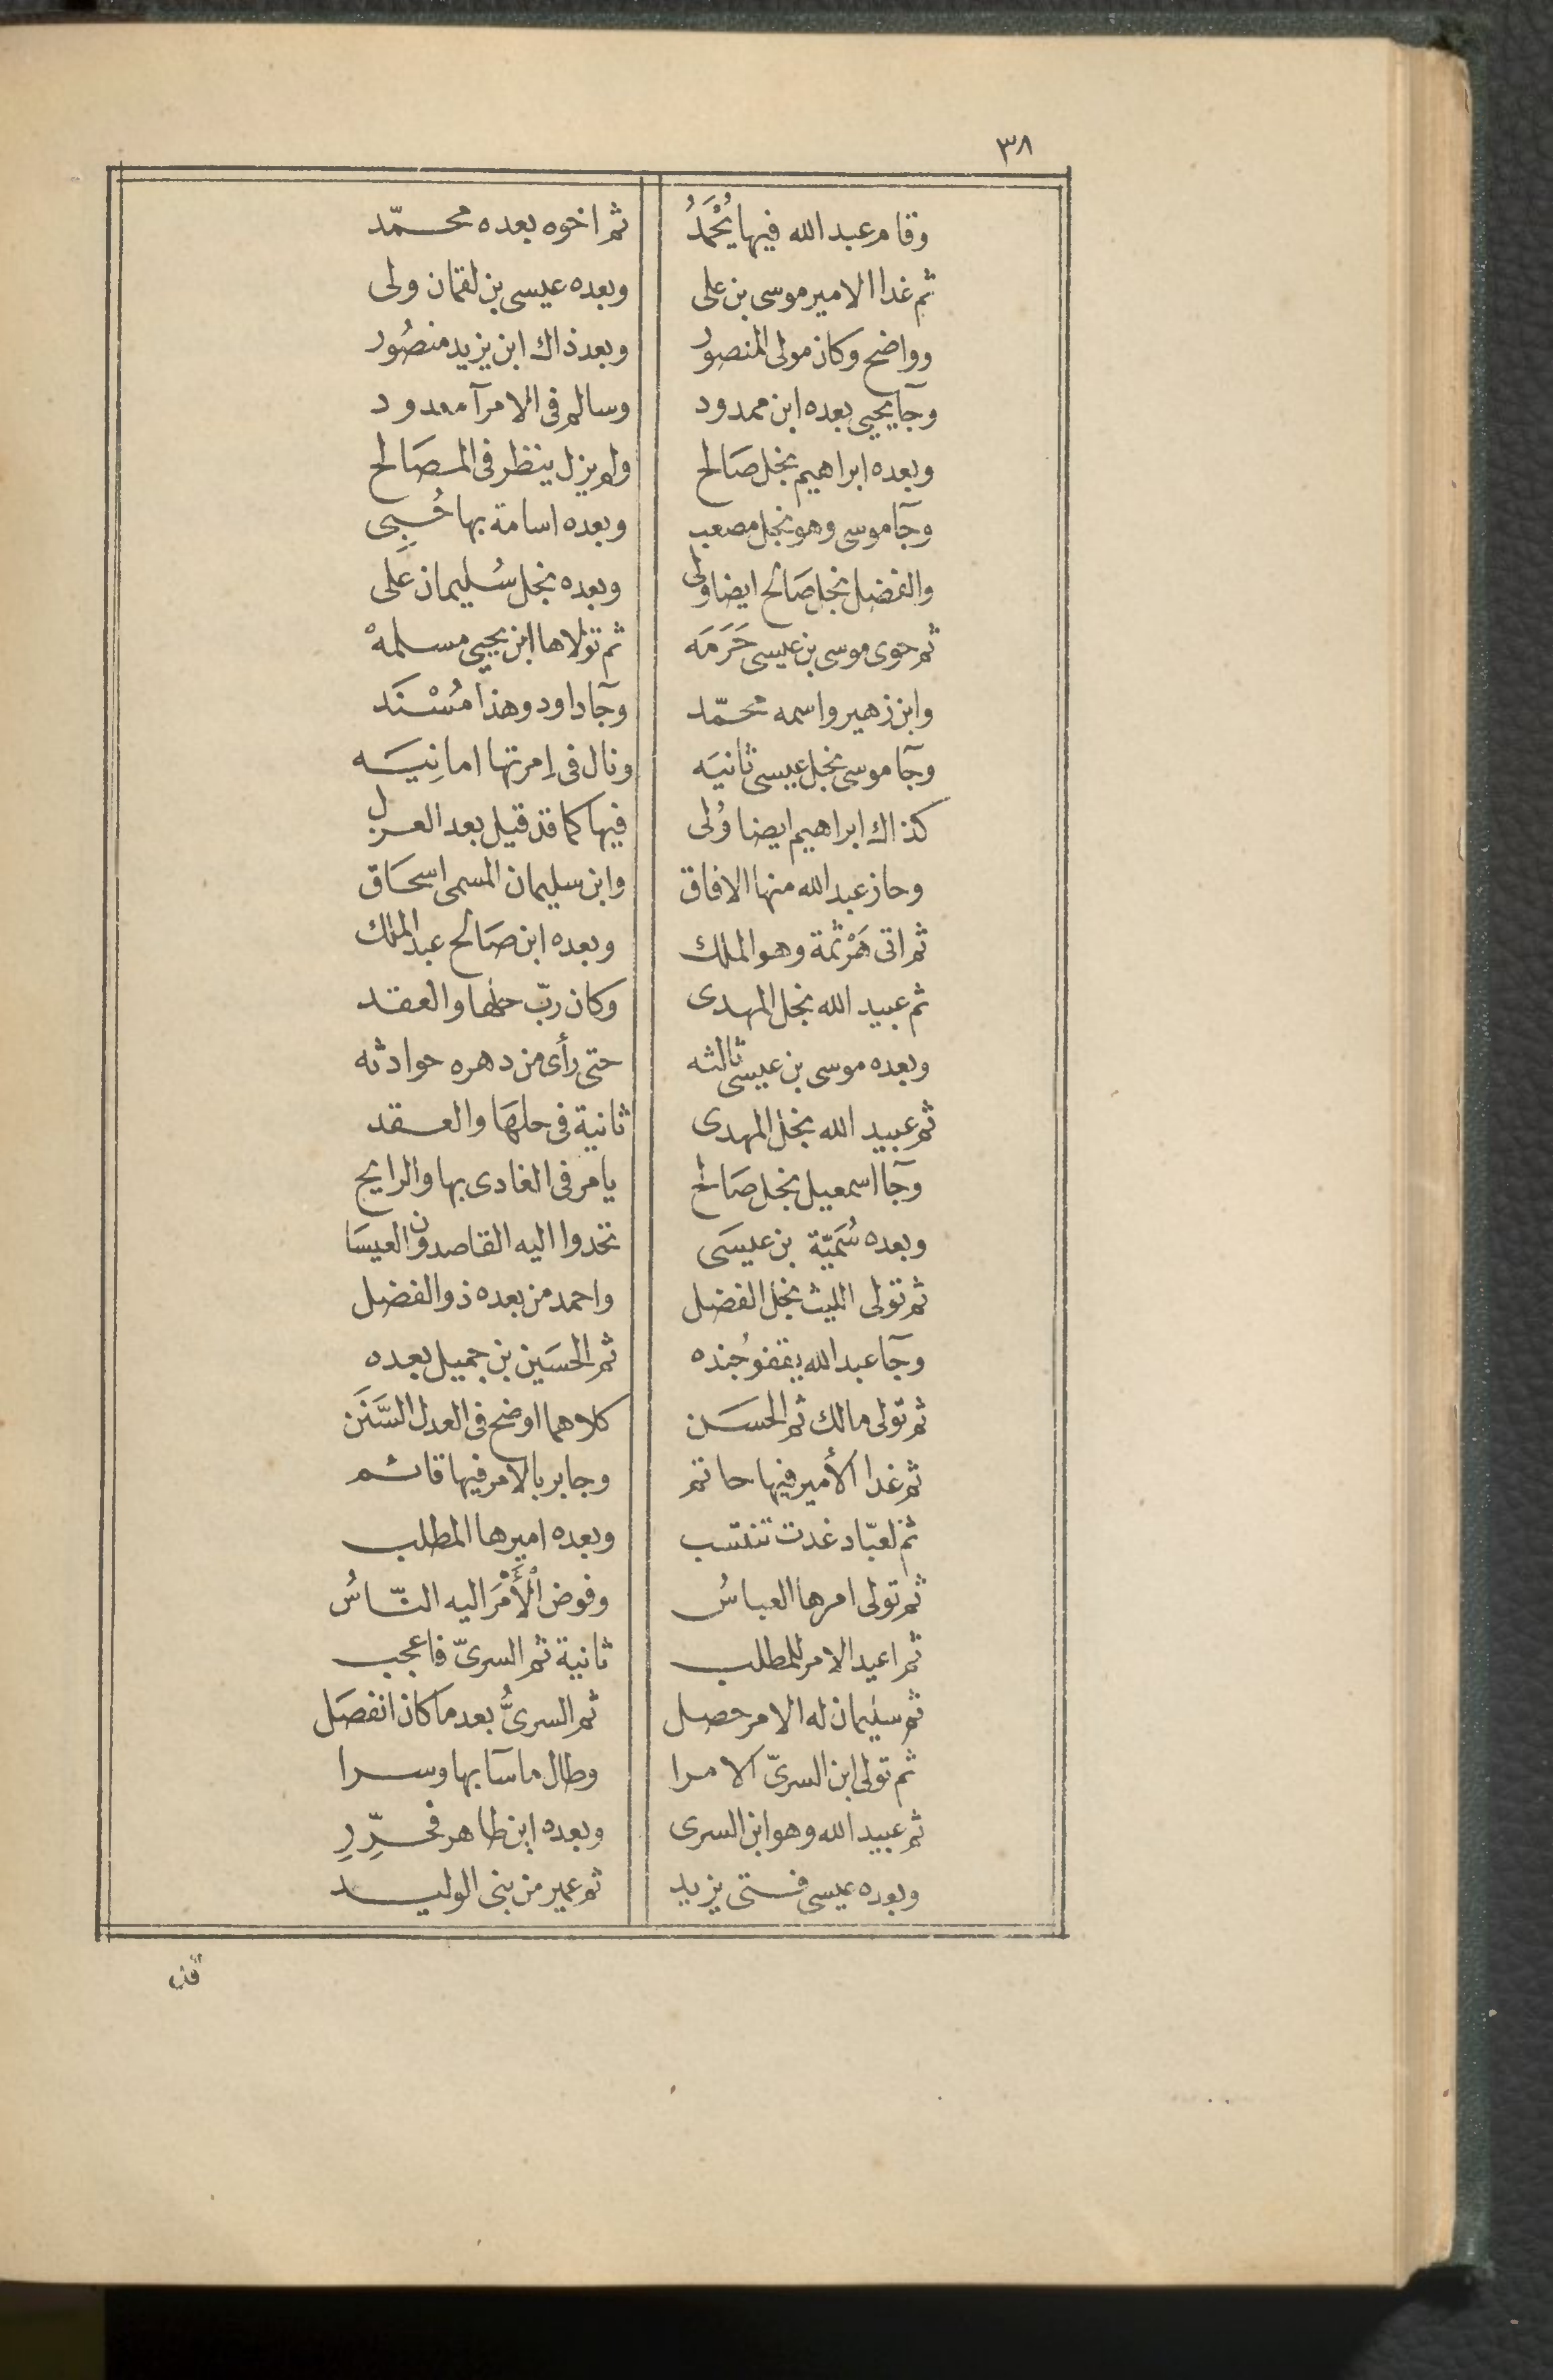 ٣٨
وقام عبد الله فيها يُحْمَدُ ثم اخوه بعده محمّد
ثم غدا الامير موسى بن على وبعده عيسى بن لقمان ولى
وواضح وكان مولى المنصور وبعد ذاك ابن يزيد منصُور
وجآ يحيى بعده ابن ممدود وسالم فى الامرآ معدود
وبعده ابراهيم نجل صَالح ولم يزل ينظر فى المصَالح
وجآ موسى وهو نجل مصعب وبعده اسامة بها حُبِى
والفضل نجل صَالح ايضا ولى وبعده نجل سُليمان عَلى
ثم حوى موسى بن عيسى حَرَمَه ثم تولاها ابن يحيى مسلمهْ
وابن زهير واسمه محمّد وجآ داود وهذا مُسْنَد
وجآ موسى نجل عيسى ثانيَه ونال فى اِمرتها امانِيَه
كذاك ابراهيم ايضا وُلى فيها كما قد قيل بعد العزل
وحاز عبد الله منها الافاق وابن سليمان المسمى اسحَاق
ثم اتى هَرْثمة وهو الملك وبعده ابن صَالح عبد الملك
ثم عبيد الله نجل المهدى وكان ربّ حلها والعقد
وبعده موسى بن عيسى ثالثه حتى رأى من دهره حوادثه
ثم عبيد الله نجل المهدى ثانية فى حلهَا والعقد
وجآ اسمعيل نجل صَالح يامر فى الغادى بها والرايح
وبعده سُمَيّة بن عيسَى تحدوا اليه القاصدون العيسَا
ثم تولى الليث نجل الفضل واحمد من بعده ذو الفضل
وجآ عبد الله يقفو جُنده ثم الحسَين بن جميل بعده
ثم تولى مالك ثم الحسَن كلاهما اوضح فى العدل السَّنَن
ثم غدا الأمير فيها حاتم وجابر بالامر فيها قائم
ثم لعبّاد غدت تنتسب وبعده اميرها المطلب
ثم تولى امرها العباسُ وفوض الْأَمْرَ اليه النّاسُ
ثم اعيد الامر للمطلب ثانية ثم السرىّ فاعجب
ثم سليمان له الامر حصل ثم السرىُّ بعد ما كان انفصَل
ثم تولى ابن السرىّ الامرا وطال ما سآ بها وسرا
ثم عبيد الله وهو ابن السرى وبعده ابن طاهر فحرِّرِ
وبعده عيسى فتى يزيد ثم عمير من بنى الوليد